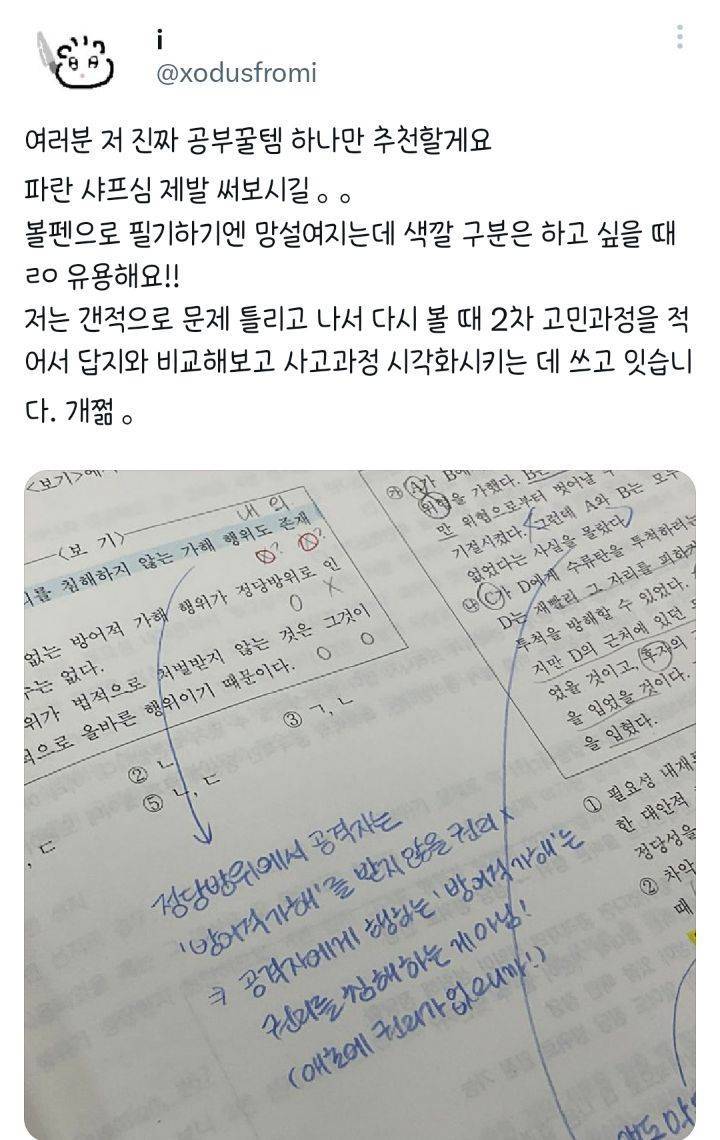 i
@xodusfromi
여러분 저 진짜 공부꿀템 하나만 추천할게요
파란 샤프심 제발 써보시길 。。
볼펜으로 필기하기엔 망설여지는데 색깔 구분은 하고 싶을 때
ㄹㅇ 유용해요!!
저는 갠적으로 문제 틀리고 나서 다시 볼 때 2차 고민과정을 적
어서 답지와 비교해보고 사고과정 시각화시키는 데 쓰고 잇습니
다. 개쩖 。
<보기>에
<보 기>
내의
를 침해하지 않는 가해 행위도 존재
X? X?
없는 방어적 가해 행위가 정당방위로 인
수는 없다.
O X
위가 법적으로 처벌받지 않는 것은 그것이
적으로 올바른 행위이기 때문이다.
O O
② ㄴ
③ ㄱ, ㄴ
⑤ ㄴ, ㄷ
, ㄷ
정당방위에서 공격자는
'방어적 가해'를 받지 않을 권리 x
⇒ 공격자에게 행하는 '방어적 가해'는
권리를 침해하는 게 아님!
(애초에 권리가 없으니까!)
㉮ A가 B에
위협을 가했다. B는
만 위협으로부터 벗어날 수
기절시켰다. 그런데 A와 B는 모두
없었다는 사실을 몰랐다.
㉯ C가 D에게 수류탄을 투척하려는
D는 재빨리 그 자리를 피하
투척을 방해할 수 있었다.
지만 D의 근처에 있던
었을 것이고, 후자의
을 입었을 것이다.
을 입혔다.
① 필요성 내재
한 대안적
정당성을
② 차악
때